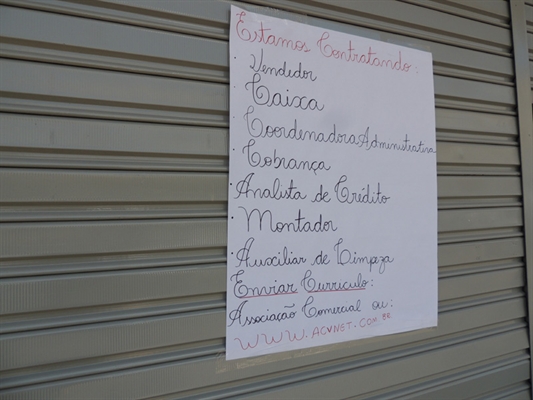 Estamos Contratando:
· Vendedor
· Caixa
· Coordenadora Administrativa
· Cobrança
· Analista de Crédito
· Montador
· Auxiliar de Limpeza
Enviar Curriculo:
Associação Comercial ou:
WWW.ACVNET.COM.BR